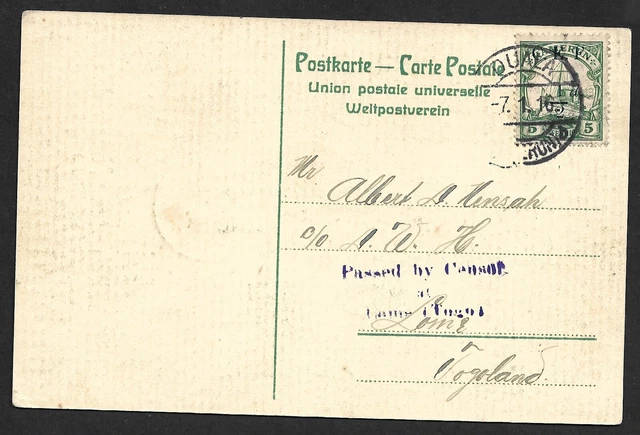 Postkarte — Carte Postale
Union postale universelle
Weltpostverein
DUALA
-7. 1. 16
5 5
Mr
Albert A Mensah
c/o A. W. H.
Passed by Censor
at
Lome (Togo)
Lome
Togoland.